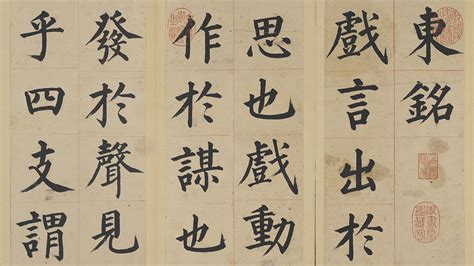 東銘
戲言出於
思也戲動
作於謀也
發於聲見
乎四支謂